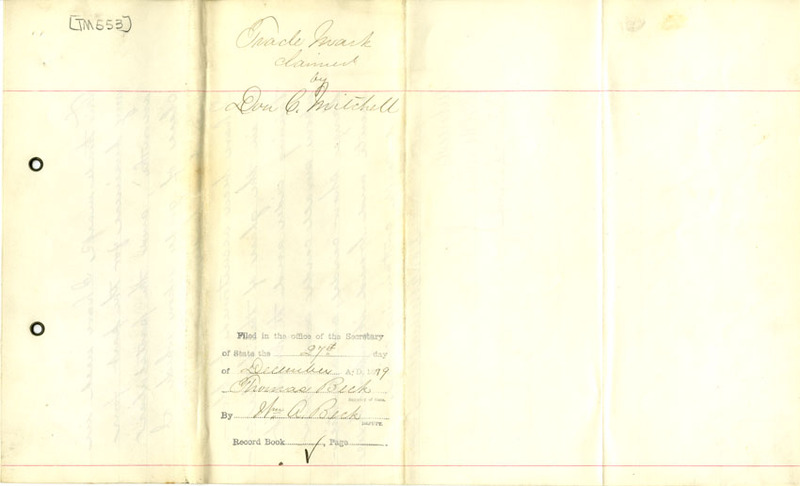 [TM553]
Trade Mark
claimed
by
Don C. Mitchell
Filed in the office of the Secretary
of State the 27th day
of December A.D. 1879
Thomas Beck
Secretary of State.
By Wm A. Beck
DEPUTY.
Record Book , Page